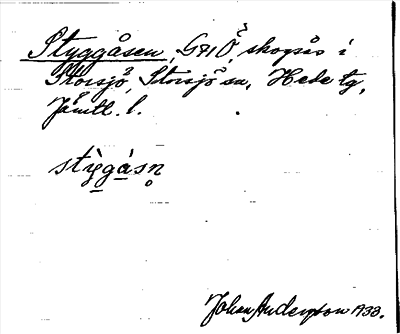 Styggåsen, G41Ö, skogsås i
Storsjö, Storsjö sn, Hede tg,
Jämtl. l.
stỳgåsn̥
Johan Anderson 1933.